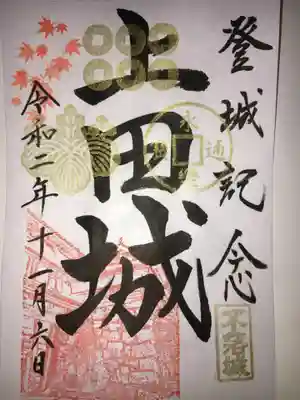 登城記念
不落城
上田城
永樂通寳
令和二年十一月六日